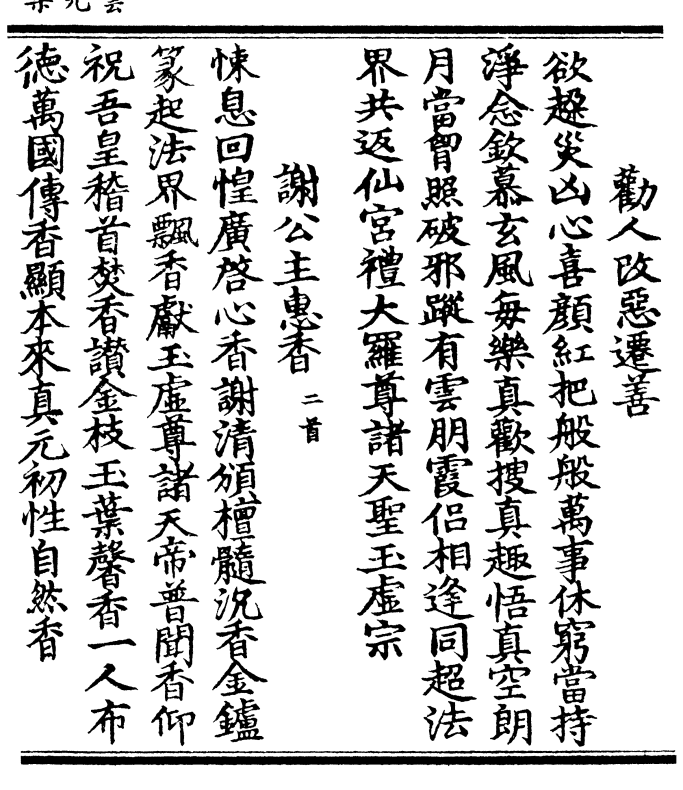 勸人改惡遷善
欲趂災凶心喜顏紅把般般萬事休窮當持
淨念欽慕玄風每樂真歡搜真趣悟真空朗
月當胷照破邪蹤有雲朋霞侣相逢同超法
界共返仙宮禮大羅尊諸天聖玉虛宗
謝公主惠香 二首
悚息回惶廣啓心香謝清頒檀髓沉香金鑪
篆起法界飄香獻玉虛尊諸天帝普聞香仰
祝吾皇稽首焚香讃金枝玉葉馨香一人布
德萬國傳香顯本來真元初性自然香